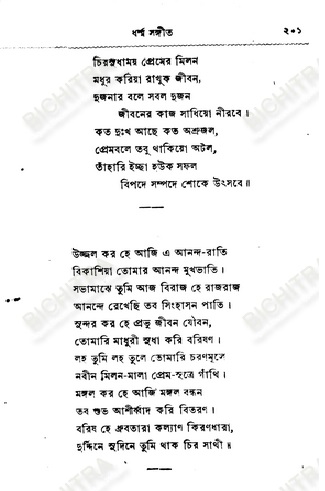 ধর্ম্ম সঙ্গীত ২০১
চিরসুধাময় প্রেমের মিলন
মধুর করিয়া রাখুক জীবন,
দুজনার বলে সবল দুজন
জীবনের কাজ সাধিয়ো নীরবে॥
কত দুঃখ আছে কত অশ্রুজল,
প্রেমবলে তবু থাকিয়ো অটল,
তাঁহারি ইচ্ছা হউক সফল
বিপদে সম্পদে শোকে উৎসবে॥
উজ্জ্বল কর হে আজি এ আনন্দ-রাতি
বিকাশিয়া তোমার আনন্দ মুখভাতি।
সভামাঝে তুমি আজ বিরাজ হে রাজরাজ
আনন্দে রেখেছি তব সিংহাসন পাতি।
সুন্দর কর হে প্রভু জীবন যৌবন,
তোমারি মাধুরী সুধা করি বরিষণ।
লহ তুমি লহ তুলে তোমারি চরণমূলে
নবীন মিলন-মালা প্রেম-সূত্রে গাঁথি।
মঙ্গল কর হে আজি মঙ্গল বন্ধন
তব শুভ আশীর্ব্বাদ করি বিতরণ।
বরিষ হে ধ্রুবতারা কল্যাণ কিরণধারা,
দুর্দ্দিনে সুদিনে তুমি থাক চির সাথী॥
BICHITRA